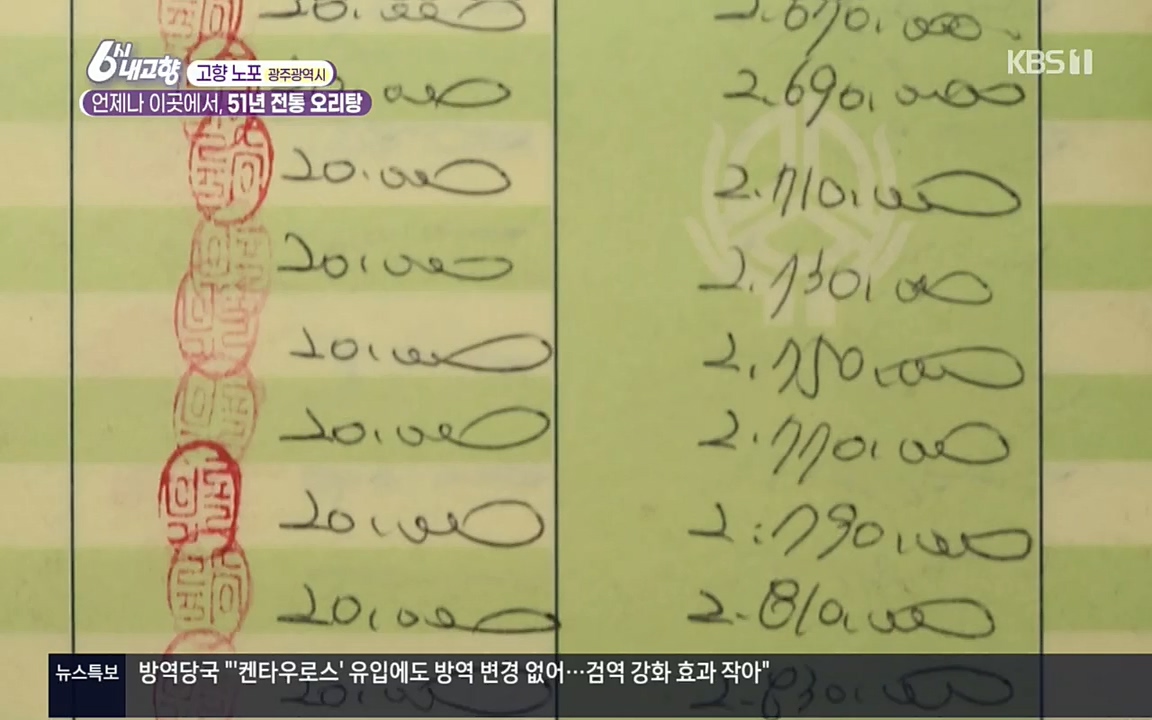 6시 내고향
고향 노포 광주광역시
언제나 이곳에서, 51년 전통 오리탕
KBS 1
20.000 2.670.000
000 2.690.000
20.000 2.710.000
20.000 2.730.000
20.000 2.750.000
20.000 2.770.000
20.000 2.790.000
20.000 2.810.000
20.000 2.830.000
뉴스특보 방역당국 "'켄타우로스' 유입에도 방역 변경 없어…검역 강화 효과 작아"